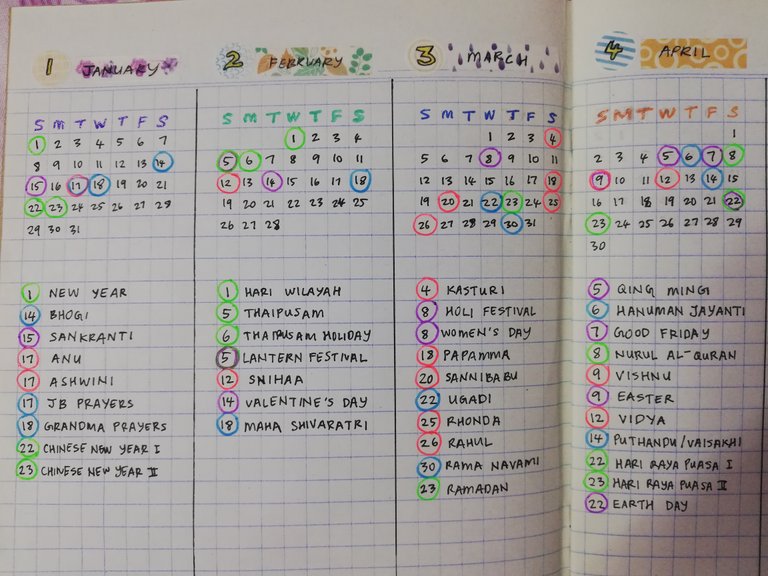 1 JANUARY
S M T W T F S
1 2 3 4 5 6 7
8 9 10 11 12 13 14
15 16 17 18 19 20 21
22 23 24 25 26 27 28
29 30 31
1 NEW YEAR
14 BHOGI
15 SANKRANTI
17 ANU
17 ASHWINI
17 JB PRAYERS
18 GRANDMA PRAYERS
22 CHINESE NEW YEAR I
23 CHINESE NEW YEAR II
2 FEBRUARY
S M T W T F S
1 2 3 4
5 6 7 8 9 10 11
12 13 14 15 16 17 18
19 20 21 22 23 24 25
26 27 28
1 HARI WILAYAH
5 THAIPUSAM
6 THAIPUSAM HOLIDAY
5 LANTERN FESTIVAL
12 SNIHAA
14 VALENTINE'S DAY
18 MAHA SHIVARATRI
3 MARCH
S M T W T F S
1 2 3 4
5 6 7 8 9 10 11
12 13 14 15 16 17 18
19 20 21 22 23 24 25
26 27 28 29 30 31
4 KASTURI
8 HOLI FESTIVAL
8 WOMEN'S DAY
18 PAPAMMA
20 SANNIBABU
22 UGADI
25 RHONDA
26 RAHUL
30 RAMA NAVAMI
23 RAMADAN
4 APRIL
S M T W T F S
1
2 3 4 5 6 7 8
9 10 11 12 13 14 15
16 17 18 19 20 21 22
23 24 25 26 27 28 29
30
5 QING MING
6 HANUMAN JAYANTI
7 GOOD FRIDAY
8 NURUL AL-QURAN
9 VISHNU
9 EASTER
12 VIDYA
14 PUTHANDU/VAISAKHI
22 HARI RAYA PUASA I
23 HARI RAYA PUASA II
22 EARTH DAY